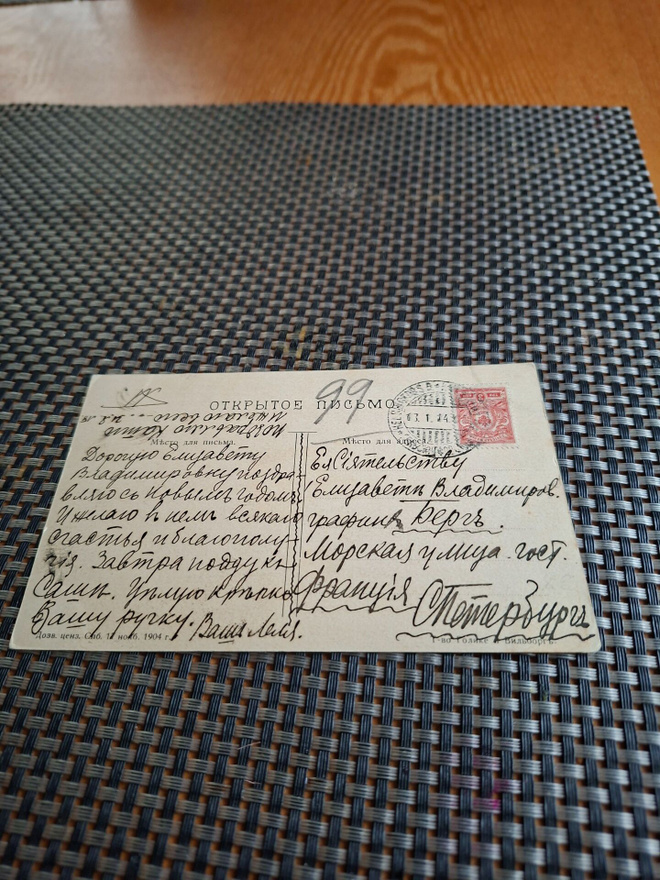 ОТКРЫТОЕ ПИСЬМО
99
Мѣсто для письма.
Мѣсто для адреса.
Дорогую Елизавету
Владимировну поздра-
вляю съ новымъ годомъ
и желаю въ немъ всякаго
счастья и благополу-
чія. Завтра поѣду къ
Сашѣ. Цѣлую крѣпко
Вашу ручку. Ваша Леля.
Поздравляю
Ея Сіятельству
Елизаветѣ Владимиров.
графинѣ Бергъ.
Морская улица. гост.
Франція
СПетербургъ
Дозв. ценз. Спб. 1904 г.
Т-во Голике и Вильборгъ.